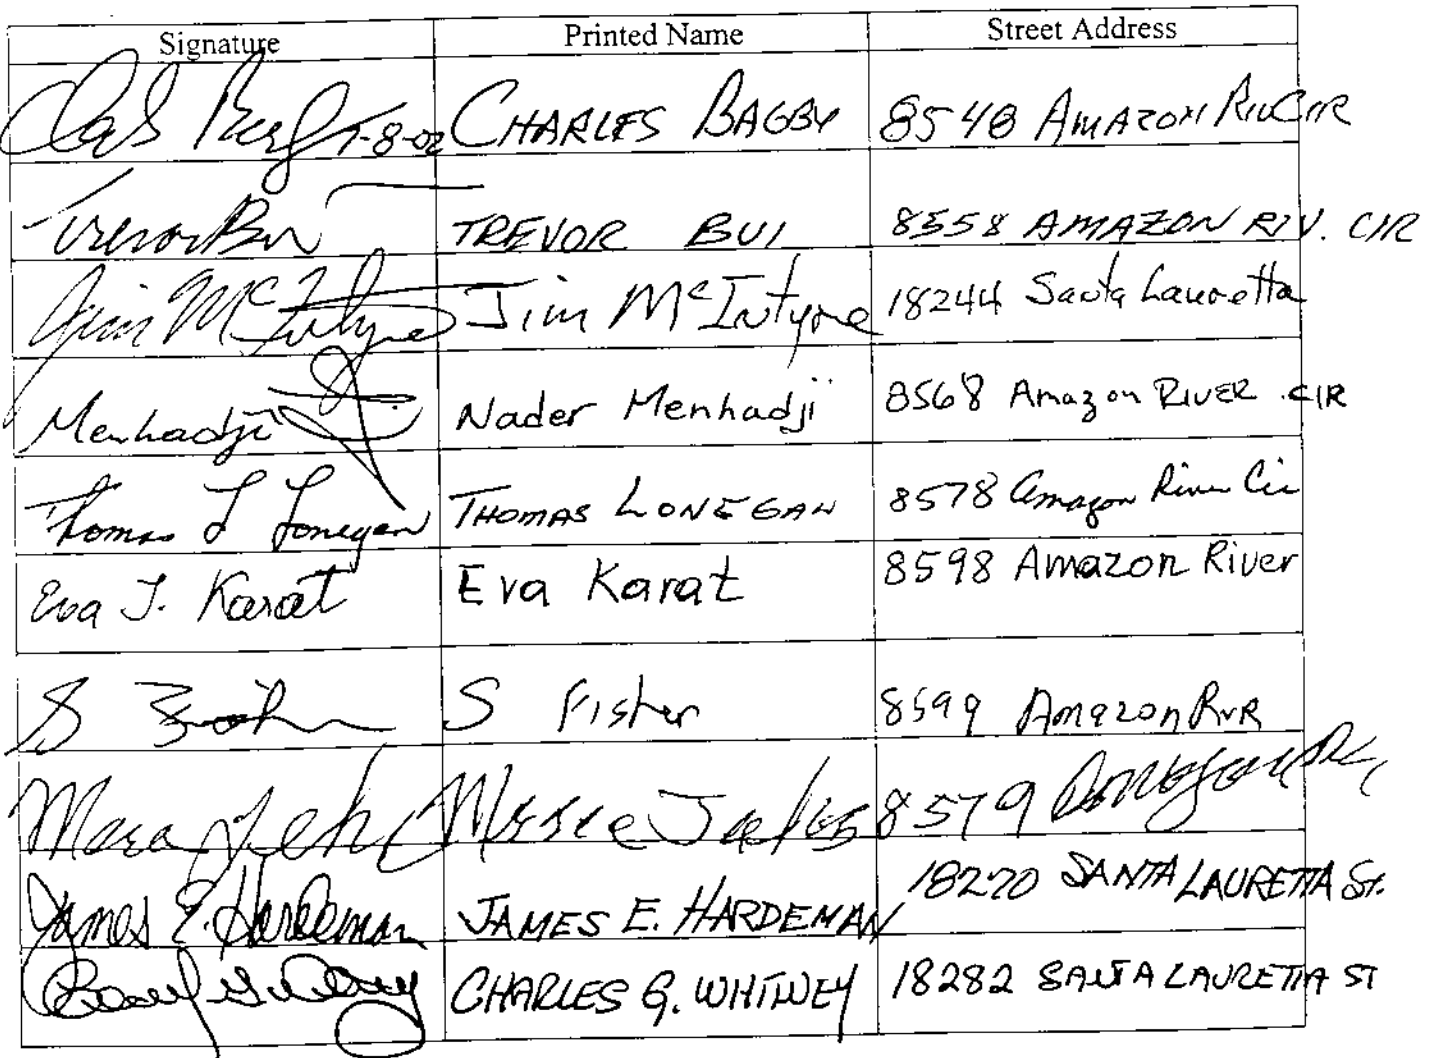 Signature Printed Name Street Address
1-8-02 CHARLES BAGBY 8548 AMAZON RIV CIR
Trevor Bui TREVOR BUI 8558 AMAZON RIV. CIR
Jim McIntyre Jim McIntyre 18244 Santa Lauretta
Menhadji Nader Menhadji 8568 Amazon RIVER CIR
Thomas L Lonegan THOMAS LONEGAN 8578 Amazon River Cir
Eva J. Karat Eva Karat 8598 Amazon River
S S Fisher 8599 Amazon RVR
8579
James E. Hardeman JAMES E. HARDEMAN 18270 SANTA LAURETTA St.
CHARLES G. WHITNEY 18282 SANTA LAURETTA ST